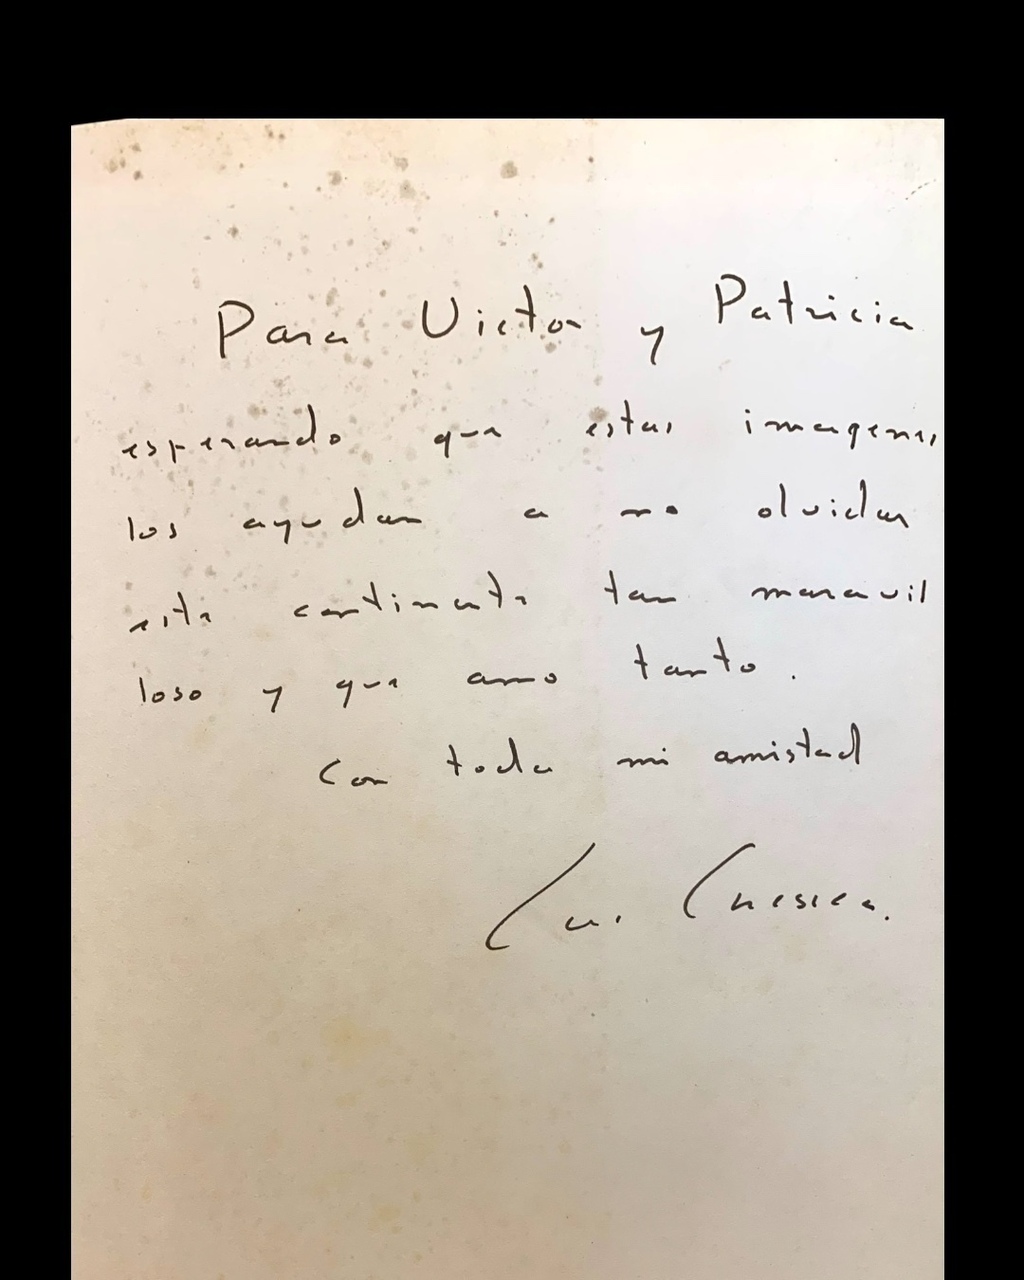 Para Victor y Patricia
esperando que estas imagenes
los ayudan a no olvidar
este continente tan maravil
loso y que amo tanto.
Con toda mi amistad